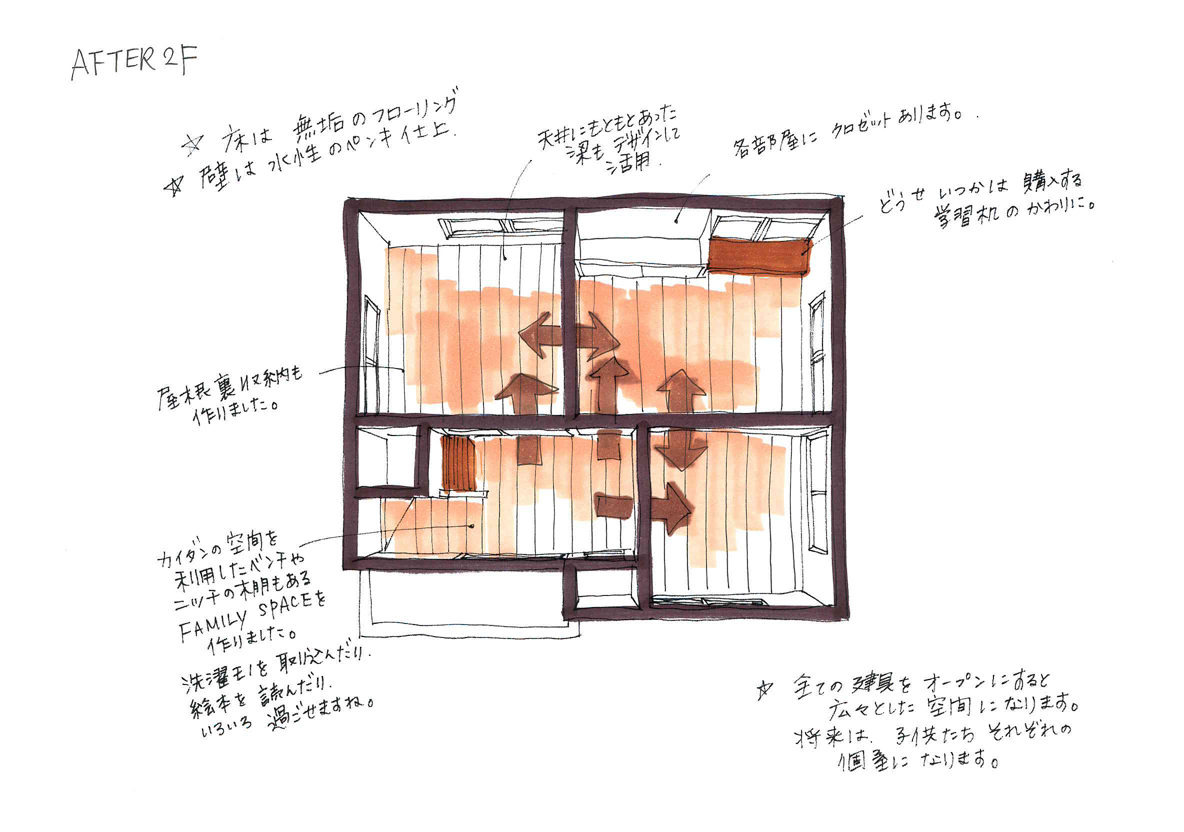 AFTER 2F
☆ 床は 無垢のフローリング
☆ 壁は 水性のペンキ仕上.
天井にもともとあった
梁も デザインして
活用.
各部屋に クロゼットあります。
どうせ いつかは 購入する
学習机のかわりに。
屋根裏収納も
作りました。
カイダンの空間を
利用したベンチや
ニッチの本棚もある
FAMILY SPACEを
作りました。
洗濯モノを 取り込んだり.
絵本を 読んだり.
いろいろ 過ごせますね。
☆ 全ての建具を オープンにすると
広々とした 空間になります。
将来は、子供たち それぞれの
個室に なります。